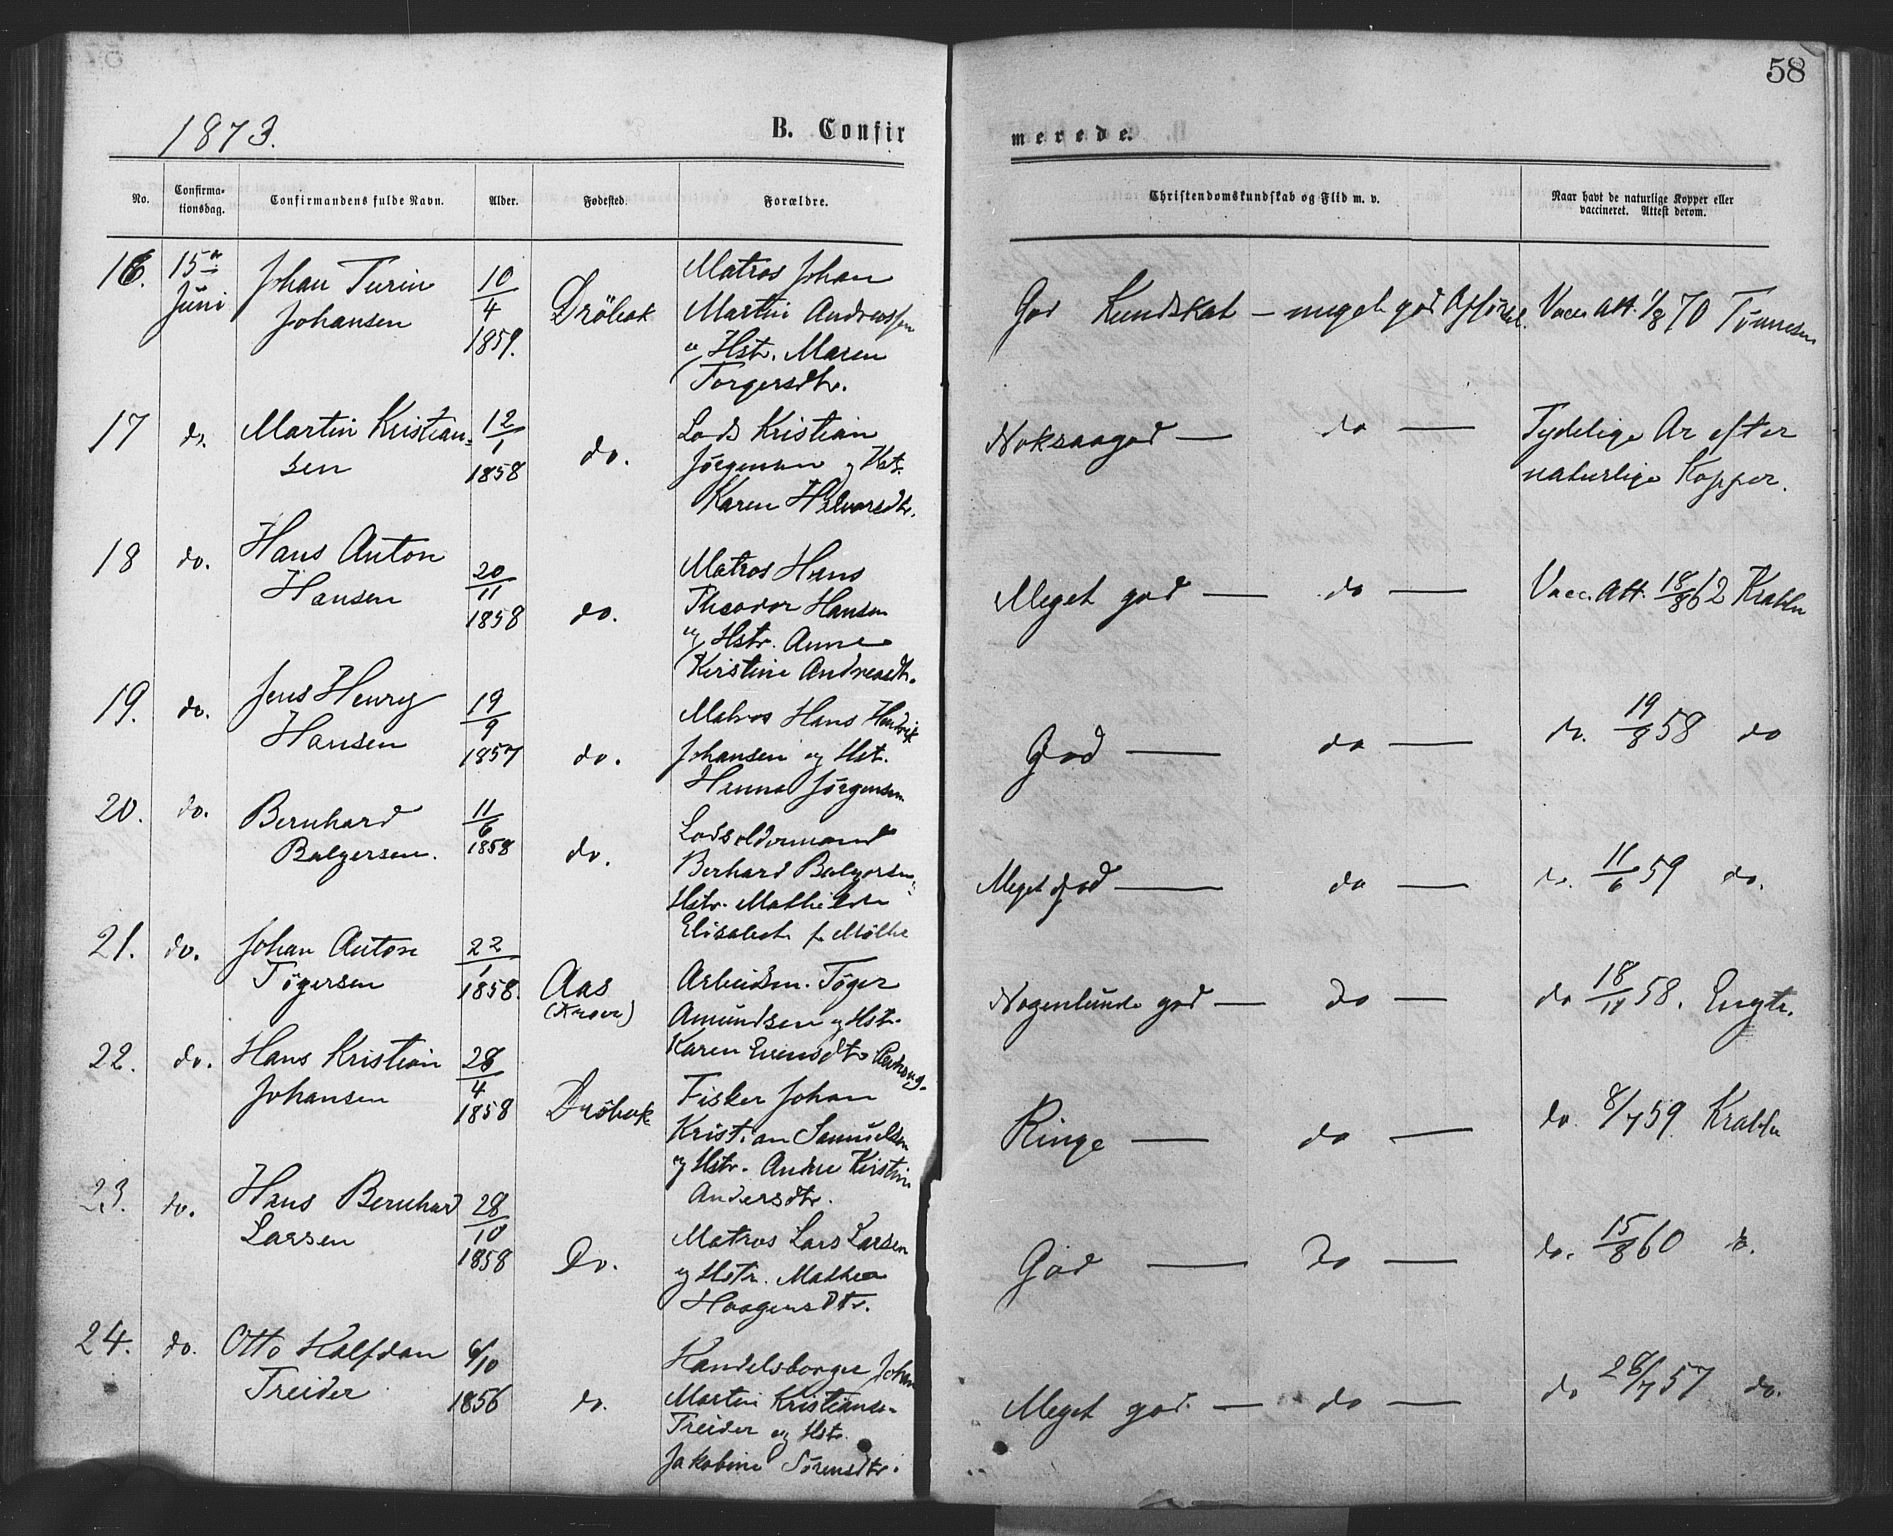 58
1873.
B. Confir
merede.
No.
Confirma-
tionsdag.
Confirmandens fulde Navn.
Alder.
Fødested.
Forældre.
Christendomskundskab og Flid m. v.
Naar havt de naturlige Kopper eller
vaccineret. Attest derom.
16.
15de
Juni
Johan Turin
Johansen
10/4
1859.
Dröbak
Matros Johan
Martin Andreassen
og Hstr. Maren
Torgersdtr.
God Kundskab – meget god Opførsel.
Vacc. Att. 1/8 70 Tønnesen
17
do.
Martin Kristian-
sen
12/1
1858
do.
Lods Kristian
Jørgensen og Hst.
Karen Halvorsdtr.
Noksaagod —
do —
Tydelige Ar efter
naturlige Kopper.
18
do.
Hans Anton
Hansen
20/11
1858
do.
Matros Hans
Theodor Hansen
og Hstr. Anne
Kirstine Andreasdtr.
Meget god —
do —
Vacc. Att. 18/8 62 Krabbe
19.
do.
Jens Henry
Hansen
19/9
1857
do.
Matros Hans Hendrik
Johansen og Hst.
Hanna Jørgensen
God —
do —
do. 19/8 58 do
20.
do.
Bernhard
Balgersen.
11/6
1858
do.
Lodsoldermand
Berhard Balgersen
Hstr. Mathilde
Elisabet f. Møller
Meget god —
do —
do. 11/6 59 do.
21.
do.
Johan Anton
Tögersen
22/1
1858.
Aas
(Kroer)
Arbeidsm. Töger
Amundsen og Hstr.
Karen Evensdtr
Nogenlunde god —
do —
do 18/11 58.
22.
do.
Hans Kristian
Johansen
28/4
1858
Dröbak
Fisker Johan
Kristian Samuelsen
og Hstr. Andrea Kirstine
Andersdtr.
Ringe —
do —
do. 8/7 59. Krabbe
23.
do.
Hans Bernhard
Larsen
28/10
1858
Do.
Matros Lars Larsen
og Hstr. Mathea
Haagensdtr.
God —
do —
do. 15/8 60 do.
24.
do.
Otto Halfdan
Treider
6/10
1856
do.
Handelsborger Johan
Martin Kristiansen
Treider og Hstr.
Jakobine Sørensdtr.
Meget god. —
do —
do 28/7 57 do.